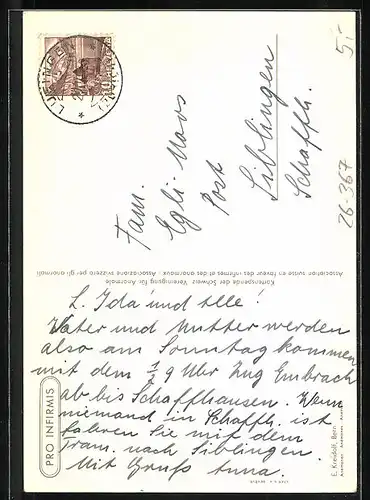 5,-
Fam.
Egli-Moos
Post
Siblingen
Schaffh.
26-367
Kartenspende der Schweiz. Vereinigung für Anormale
Association suisse en faveur des infirmes et des anormaux · Associazione svizzera per gli anormali
L. Ida und Elle!
Vater und Mutter werden
also am Sonntag kommen
mit dem ½ 9 Uhr Zug Embrach
ab bis Schaffhausen. Wenn
niemand in Schaffh. ist
fahren Sie mit dem
Tram. nach Siblingen.
Mit Gruß Anna.
PRO INFIRMIS
E. Kreidolf, Bern